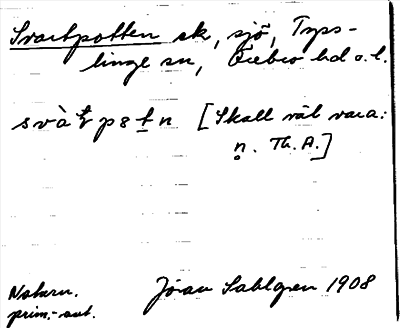 Svartpotten sk, sjö, Tyss-
linge sn, Örebro hd o. l.
svàʈpotn [Skall väl vara:
n̥. Th. A.]
Naturn.
prim.-aut.
Jöran Sahlgren 1908